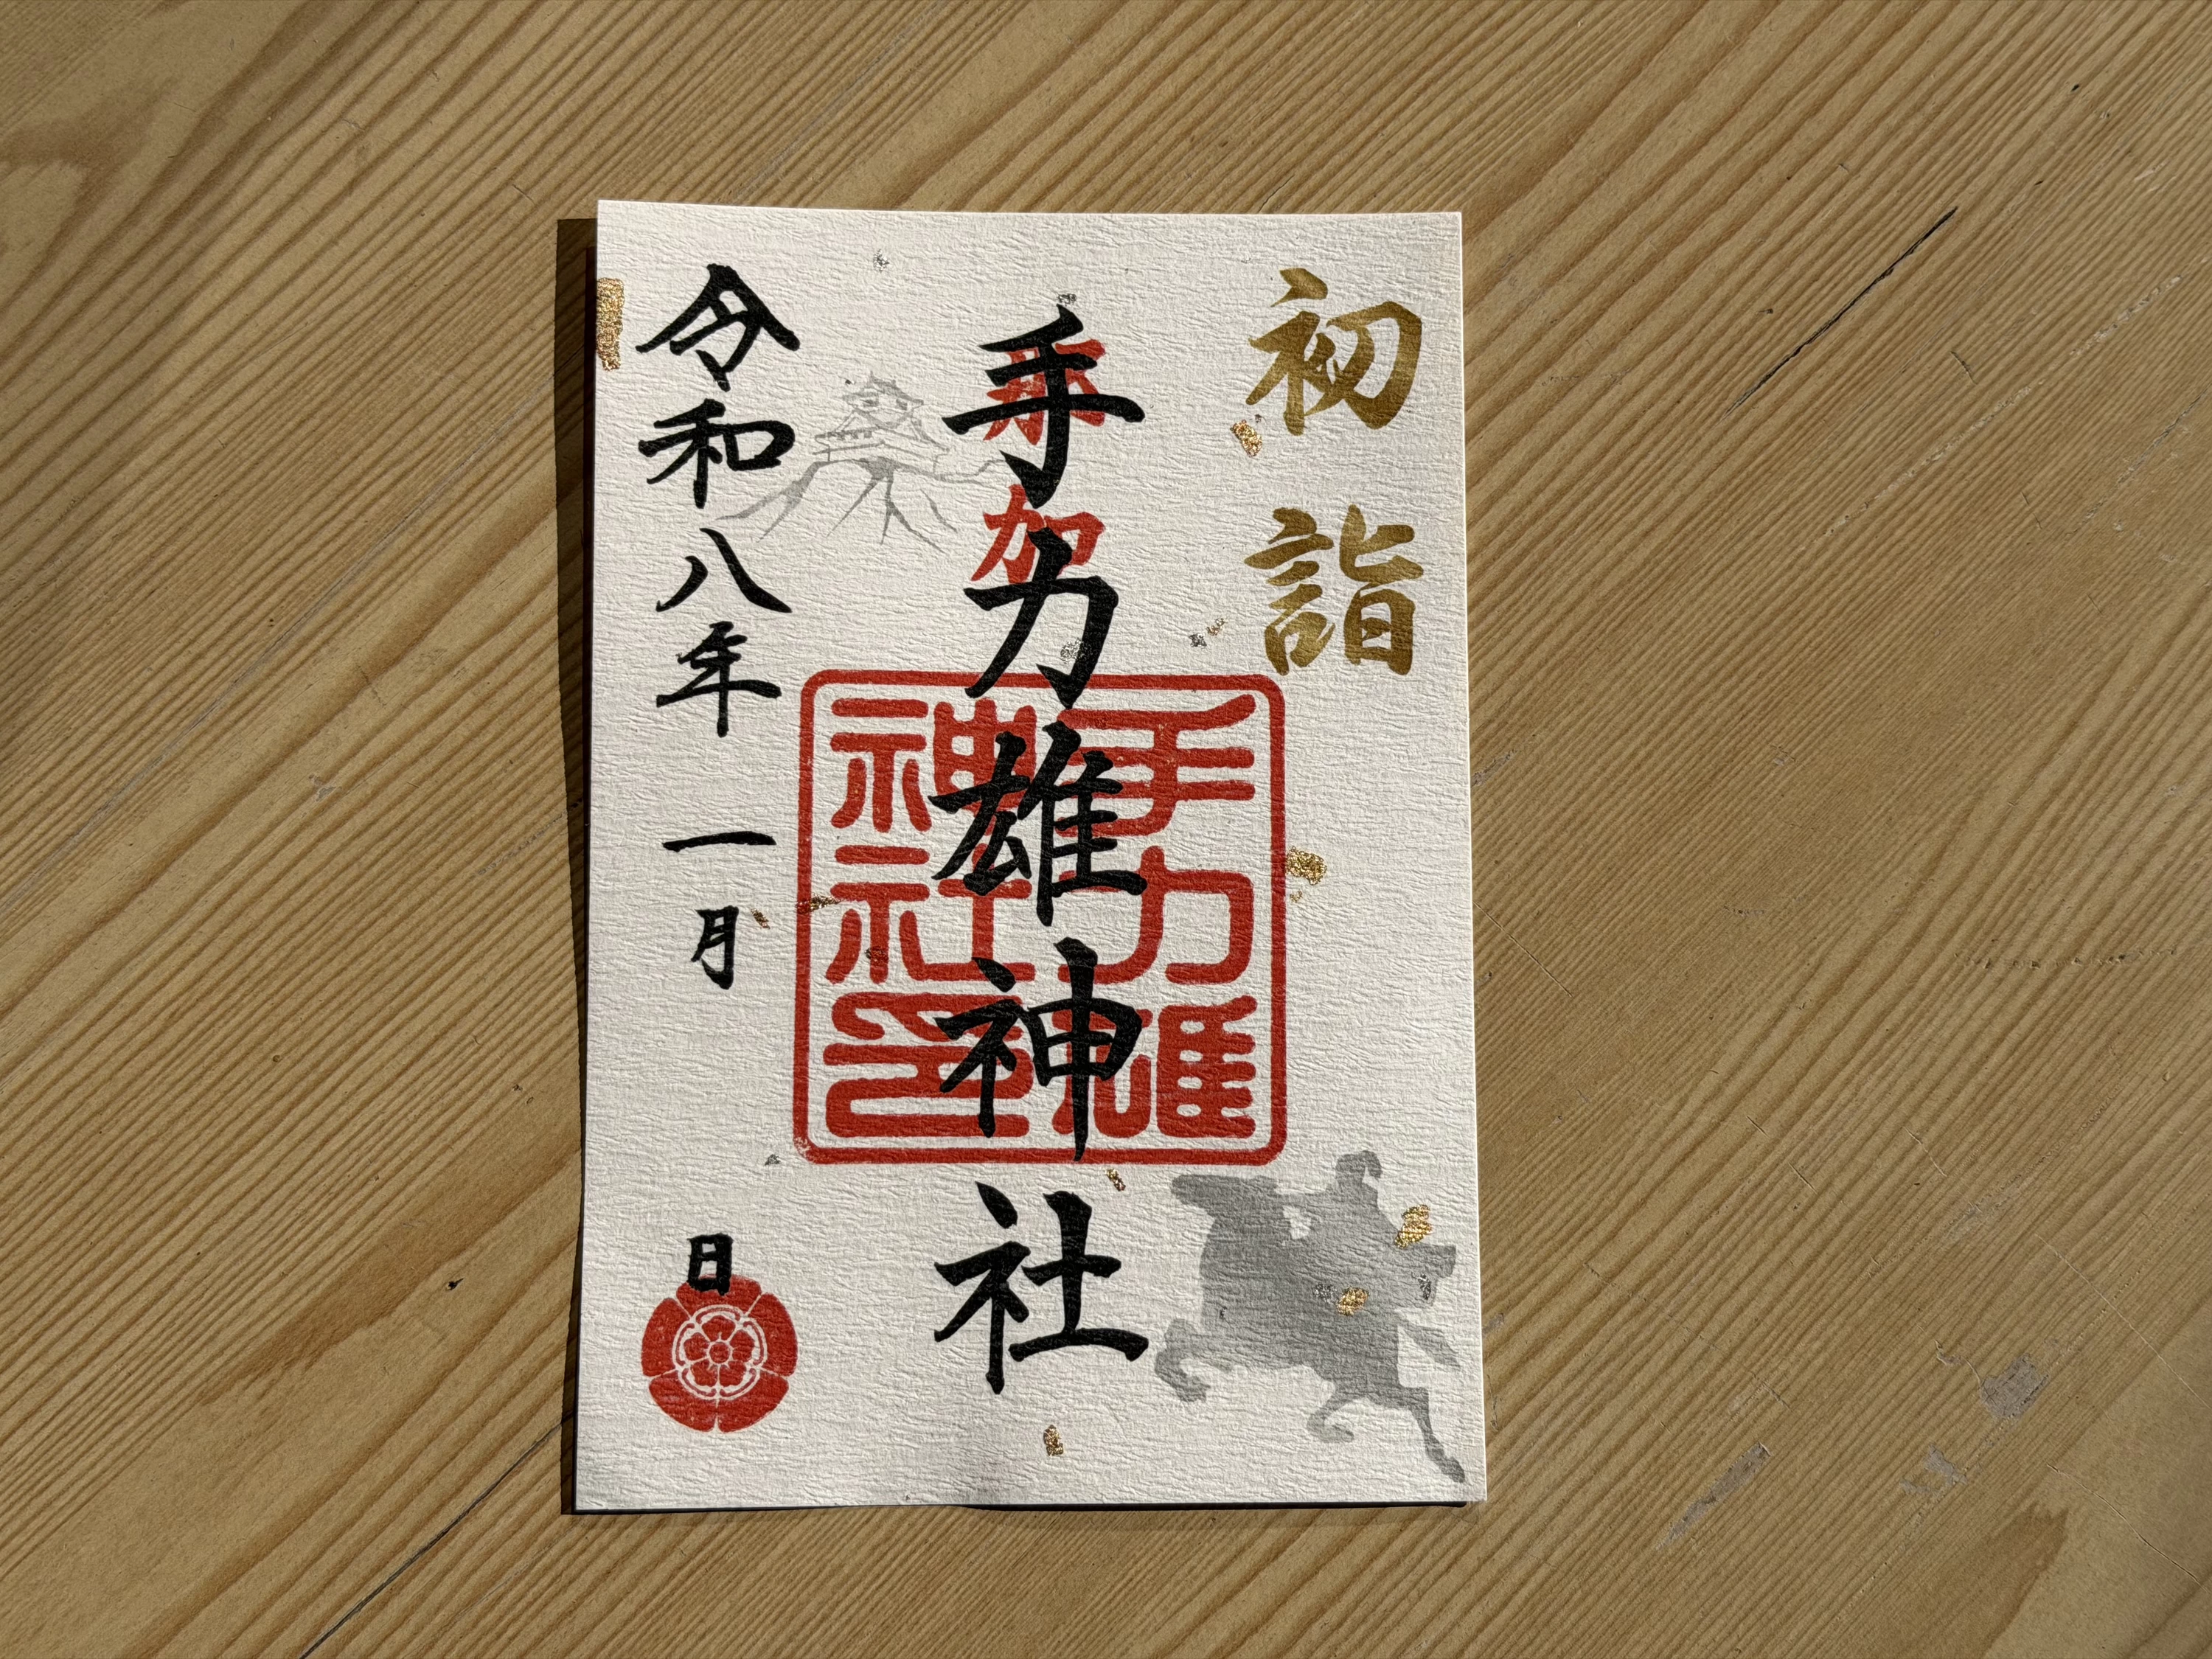 初詣
手力雄神社
各務
手力雄
神社印
令和八年 一月 日